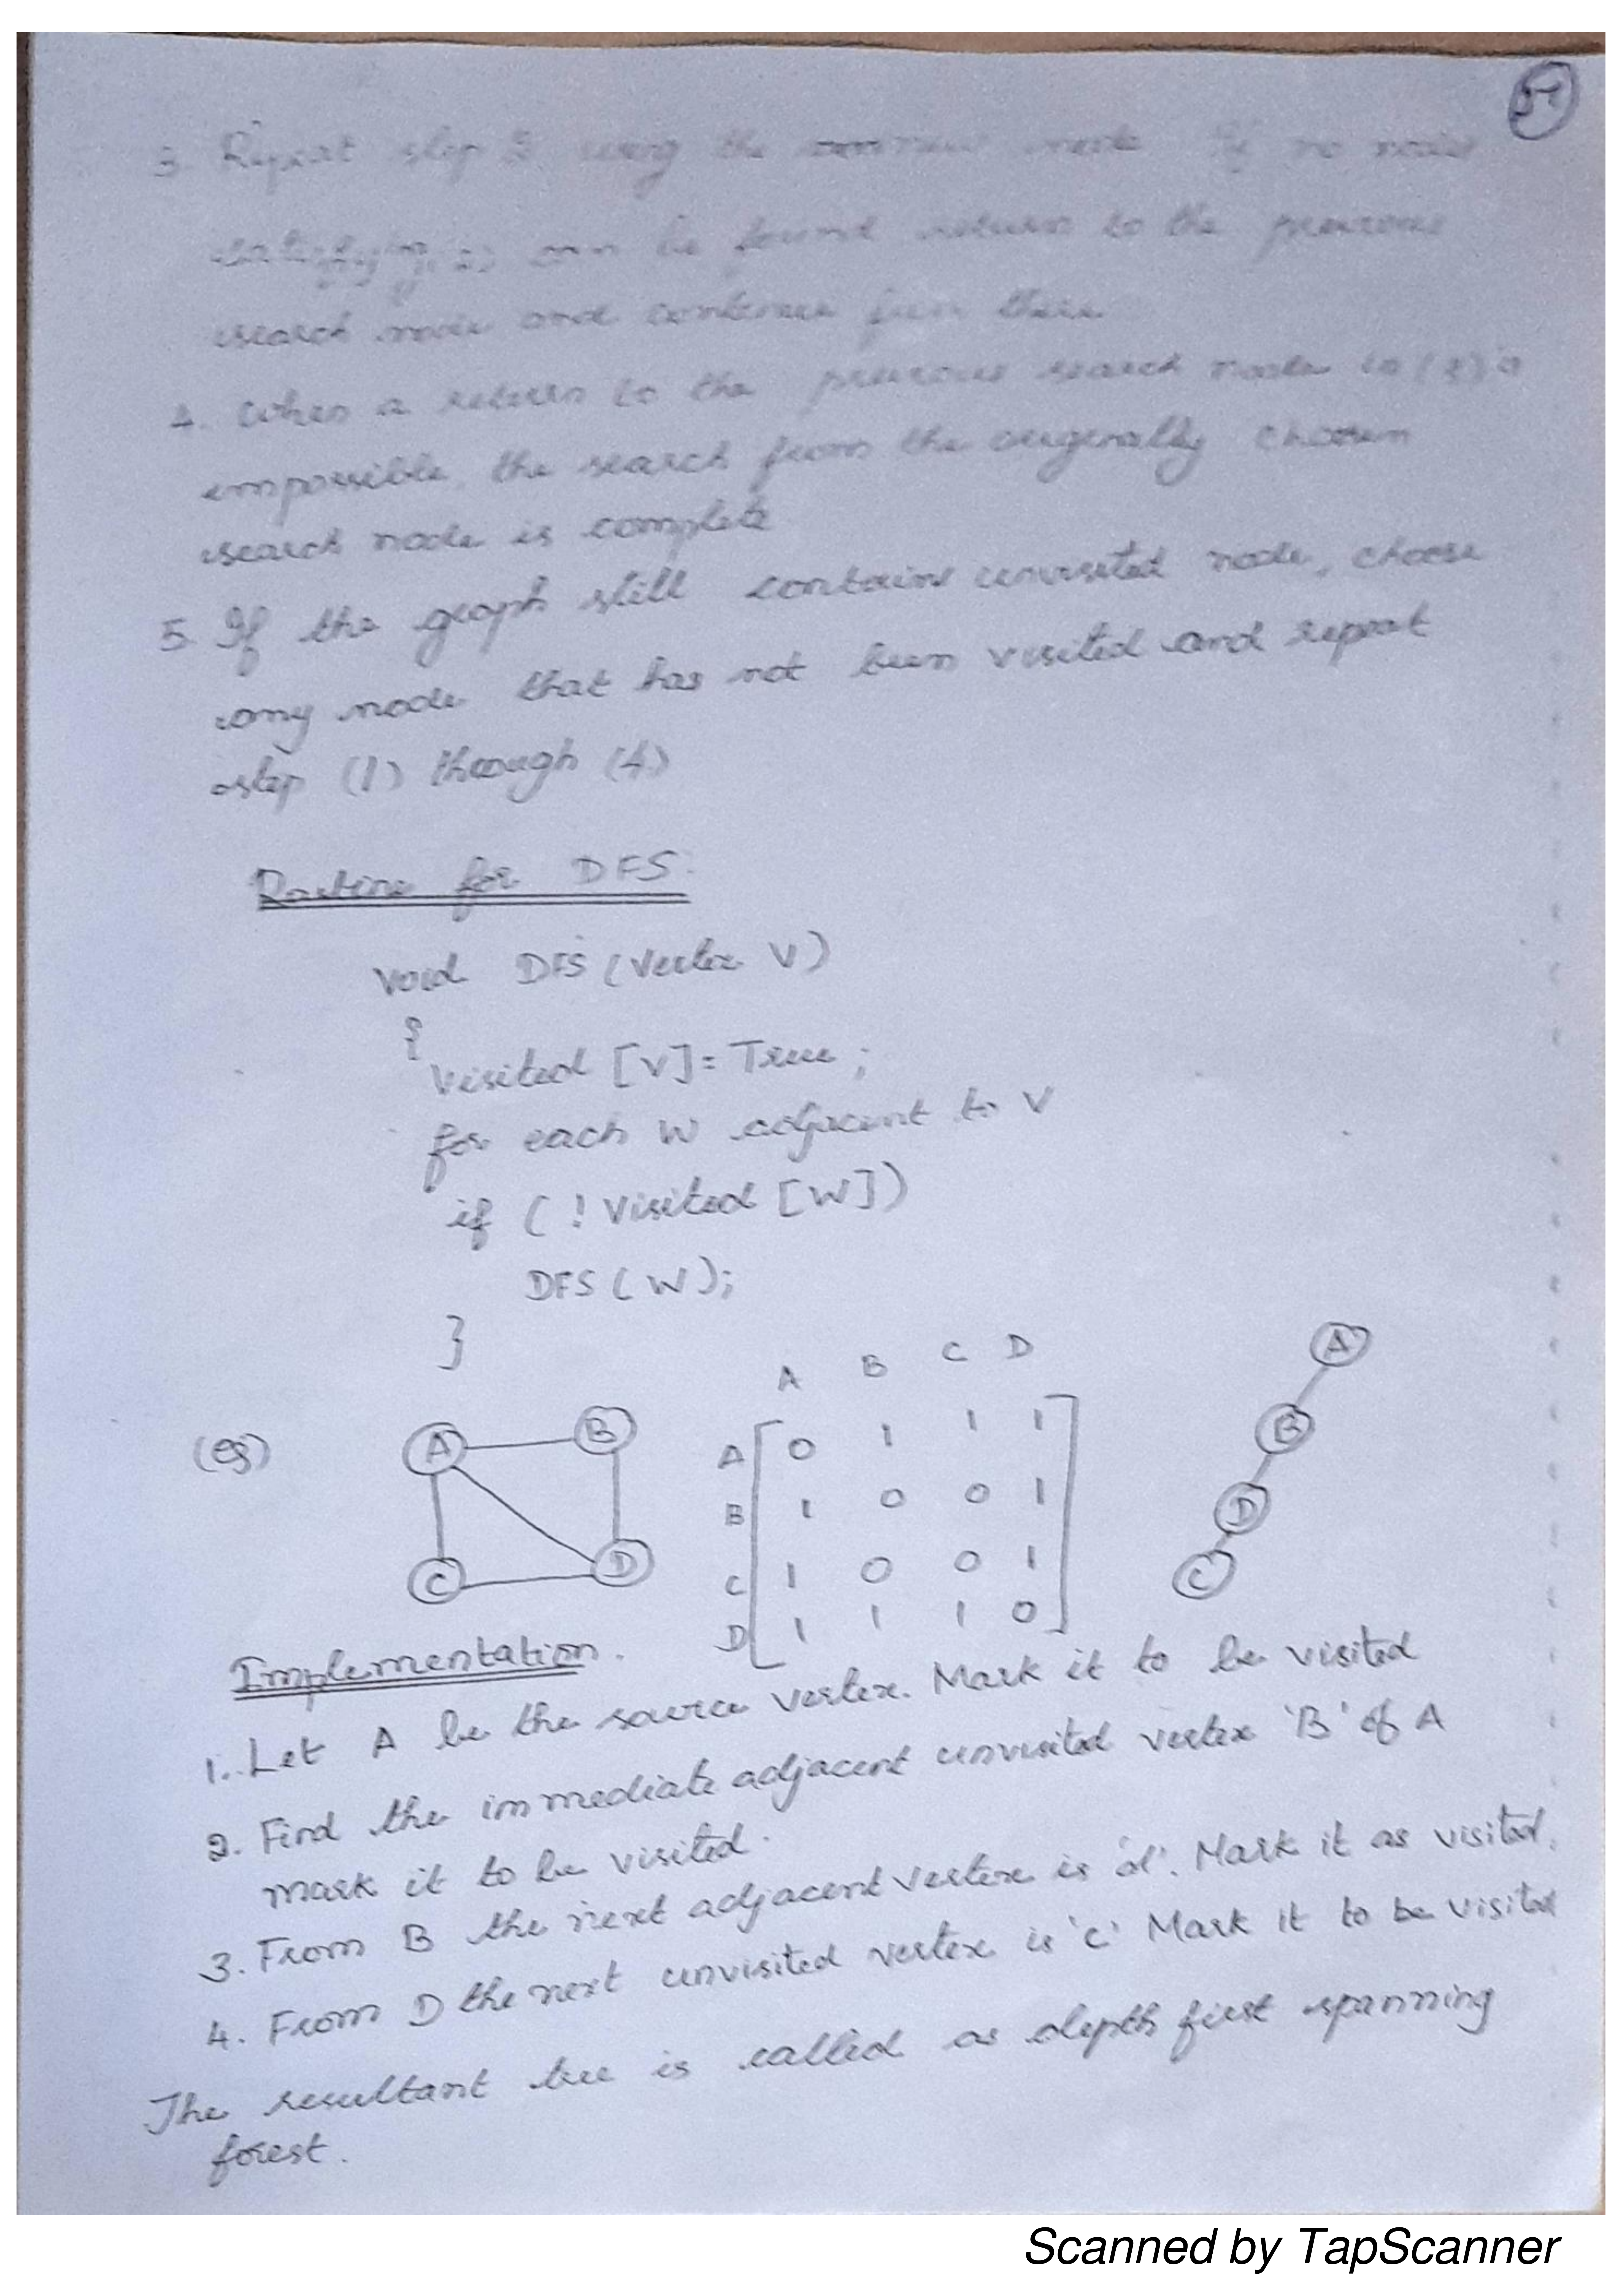 51
3. Repeat step 2 using the current node. If no nodes
satisfying (2) can be found return to the previous
search node and continue from there.
4. When a return to the previous search node in (3) is
impossible, the search from the originally chosen
search node is complete
5. If the graph still contains unvisited node, choose
any node that has not been visited and repeat
step (1) through (4)
Routine for DFS:
Void DFS (Vertex V)
{
Visited [V] = True ;
for each W adjacent to V
if ( ! Visited [W])
DFS ( W );
}
A B C D
(eg) A B A 0 1 1 1 A
B 1 0 0 1 B
C D C 1 0 0 1 D
D 1 1 1 0 C
Implementation.
1. Let A be the source vertex. Mark it to be visited
2. Find the immediate adjacent unvisited vertex 'B' of A
mark it to be visited.
3. From B the next adjacent vertex is 'd'. Mark it as visited.
4. From D the next unvisited vertex is 'c' Mark it to be visited
The resultant tree is called as depth first spanning
forest.
Scanned by TapScanner